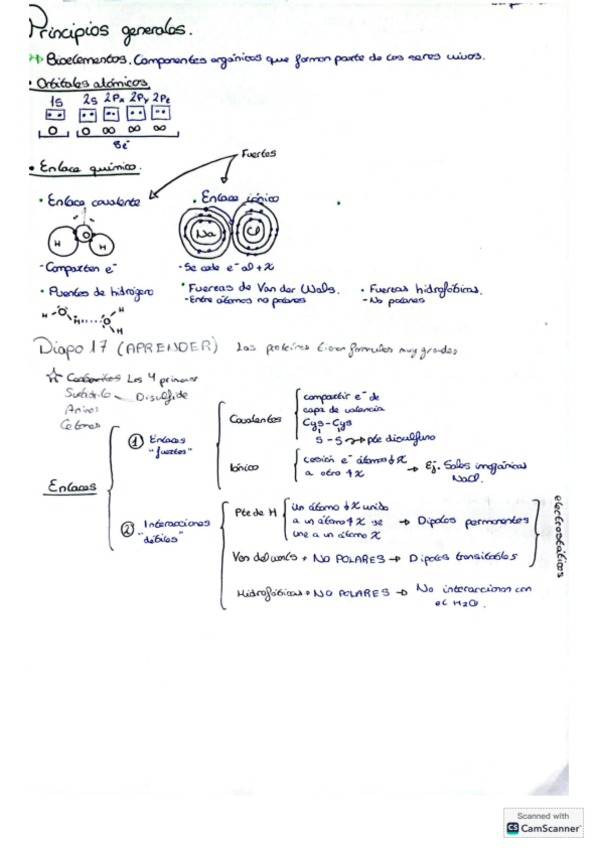 Principios generales.
Bioelementos. Componentes orgánicos que forman parte de los seres vivos.
• Orbitales atómicos
1s 2s 2Px 2Py 2Pz
8e⁻
• Enlace químico.
Fuertes
• Enlace covalente
• Enlace iónico
H O H
Na Cl
- Comparten e⁻
- Se cede e⁻ al + X
• Puentes de hidrógeno
• Fuerzas de Van der Wals.
• Fuerzas hidrofóbicas.
- Entre átomos no polares
- No polares
H O H O H
Diapo 17 (APRENDER) Las proteínas tienen formulas muy grandes
Los 4 primeros
Disulfide
Enlaces
① Enlaces
"fuertes"
Covalentes
compartir e⁻ de
capa de valencia
Cys-Cys
S-S → pte disulfuro
Iónico
cesión e⁻ átomo ↓X
a otro ↑X
→ Ej. Sales inorgánicas
NaCl.
② Interacciones
"débiles"
Pte de H
Un átomo ↓X unido
a un átomo ↑X se
une a un átomo X
→ Dipolos permanentes
Van der Waals + NO POLARES → Dipolos
Hidrofóbicas + NO POLARES → No interaccionan con
el H₂O.
electrostáticas
Scanned with
CS CamScanner